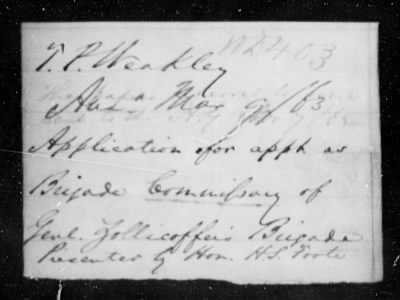 WD403
T. P. Weakley
Mar 9/63
Application for appt. as
Brigade Commissary of
Genl. Zollicoffer's Brigade
Presented by Hon. H.S. Foote